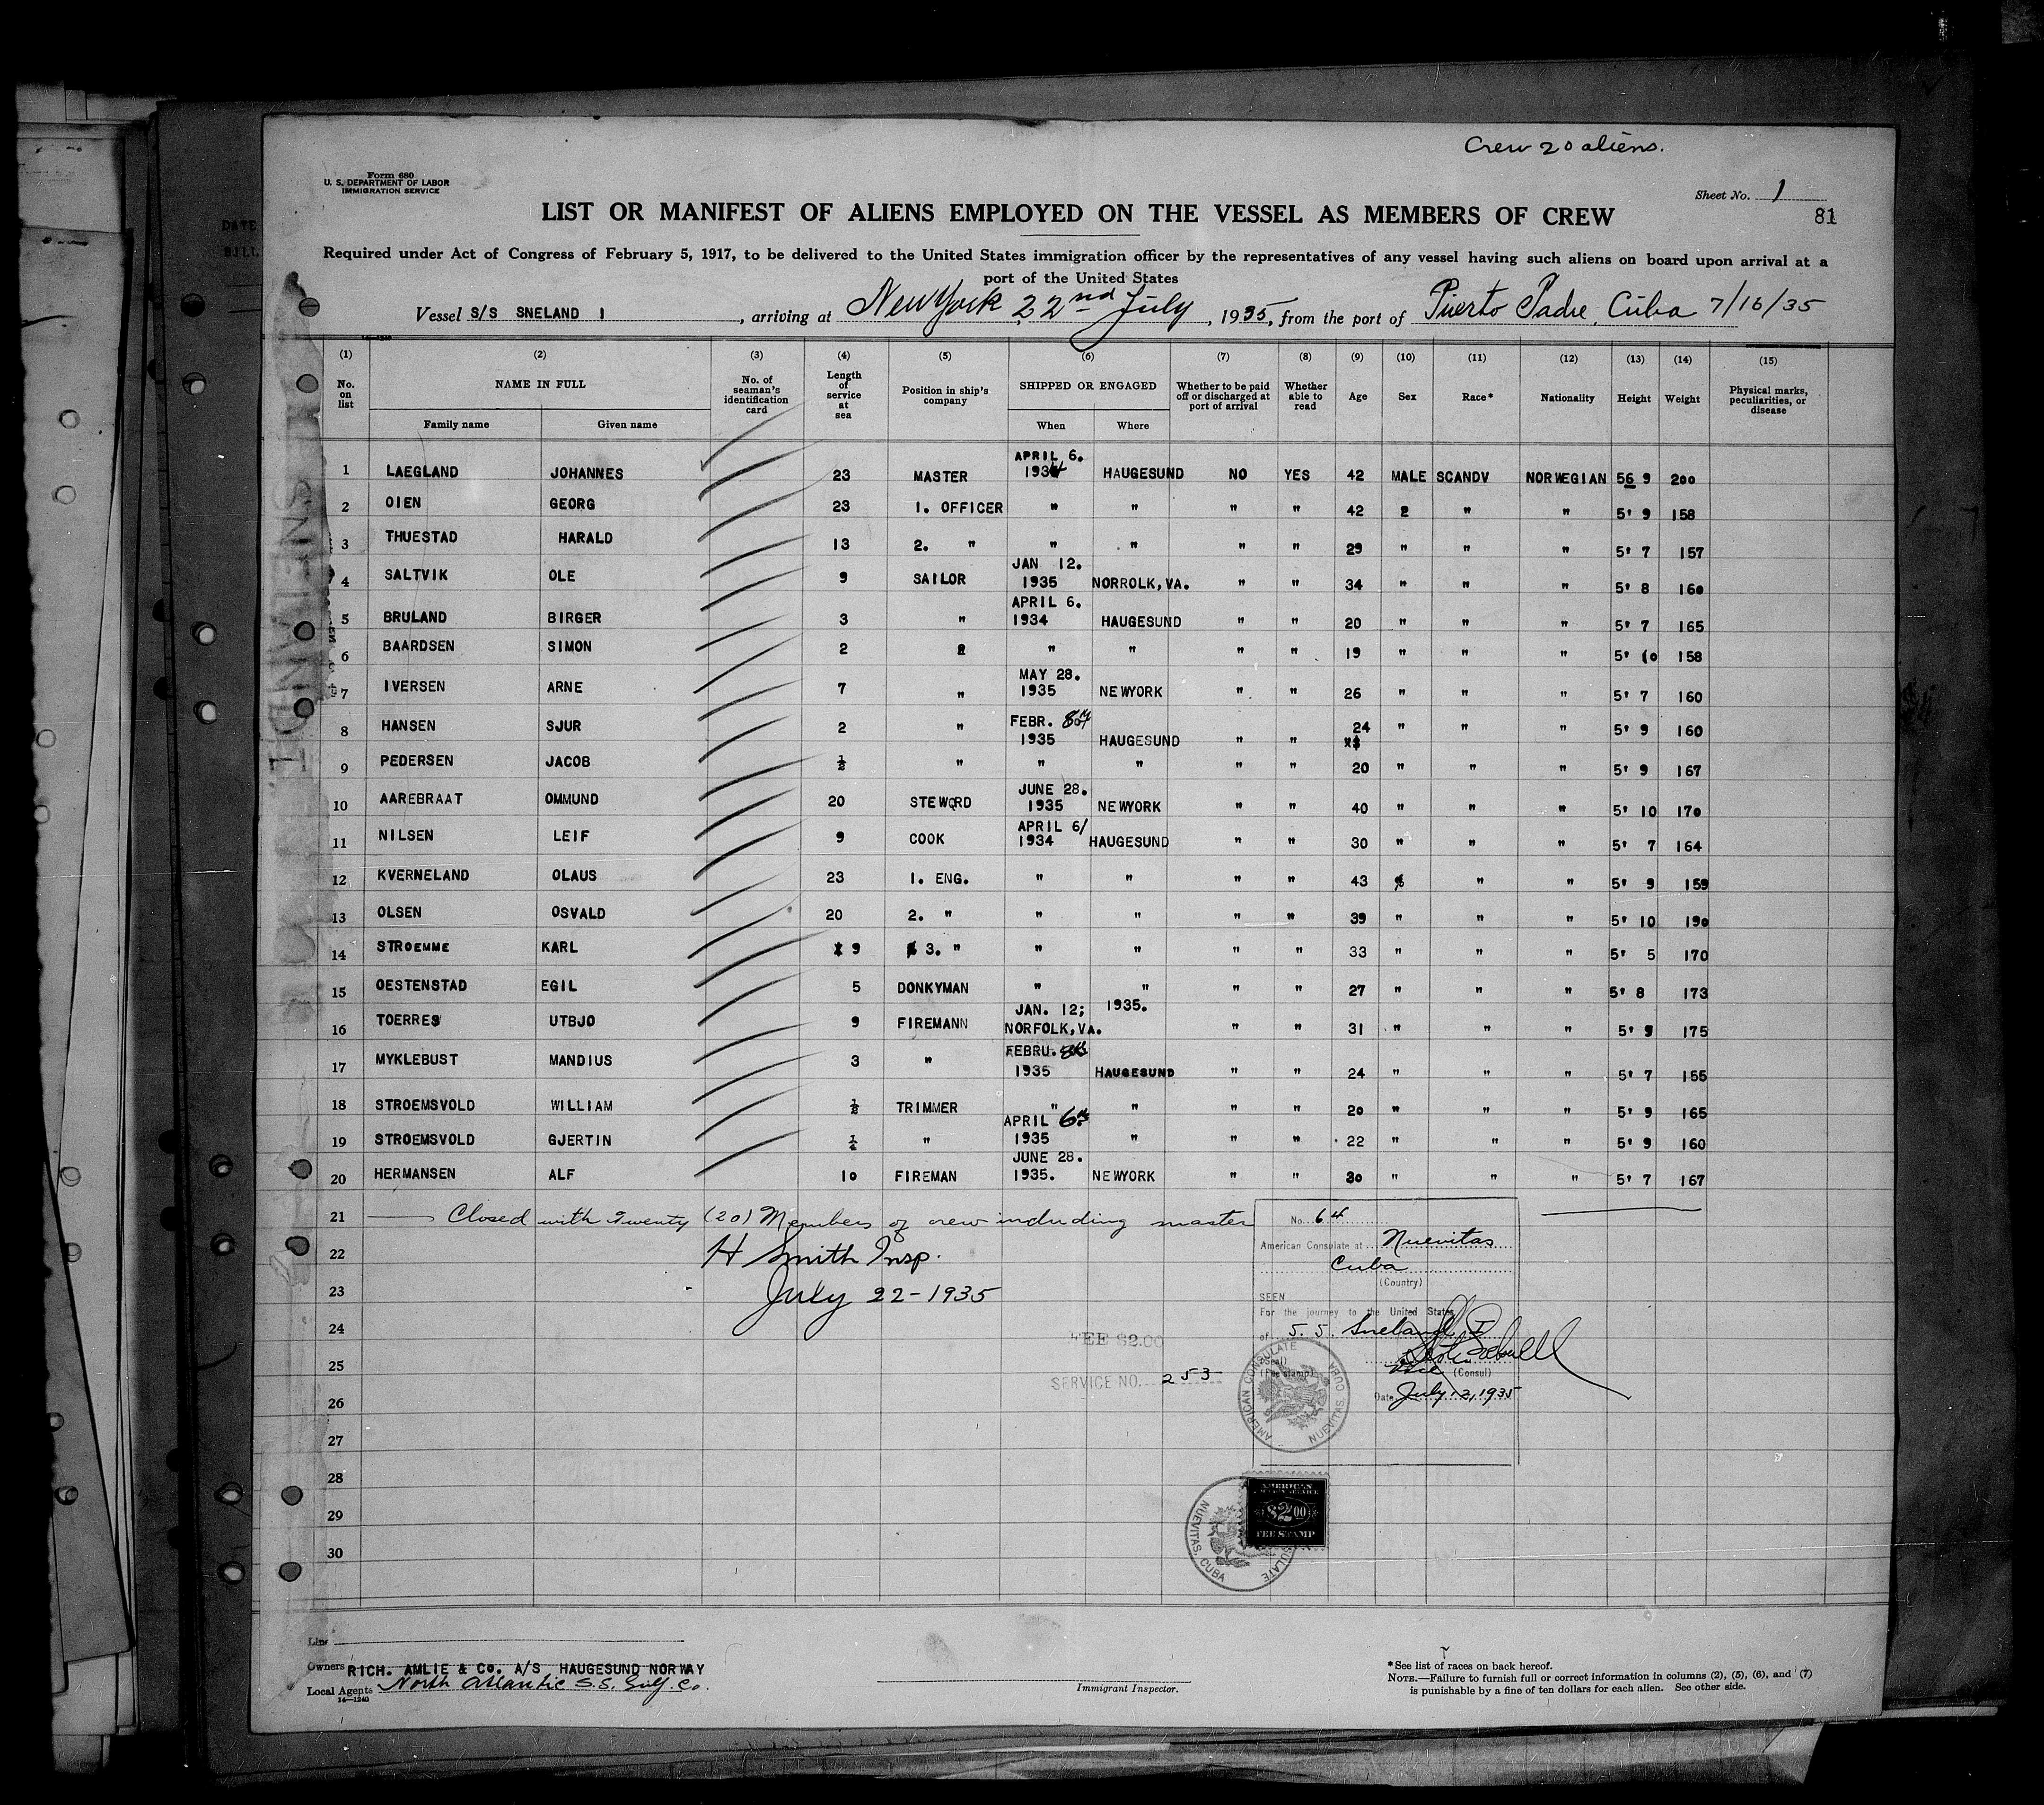 Crew 20 aliens.
Form 680
U. S. DEPARTMENT OF LABOR
IMMIGRATION SERVICE
Sheet No. 1
81
LIST OR MANIFEST OF ALIENS EMPLOYED ON THE VESSEL AS MEMBERS OF CREW
Required under Act of Congress of February 5, 1917, to be delivered to the United States immigration officer by the representatives of any vessel having such aliens on board upon arrival at a
port of the United States
Vessel S/S SNELAND 1, arriving at New York 22nd July, 1935, from the port of Puerto Padre, Cuba 7/16/35
(1) (2) (3) (4) (5) (6) (7) (8) (9) (10) (11) (12) (13) (14) (15)
No. on list NAME IN FULL Family name Given name No. of seaman's identification card Length of service at sea Position in ship's company SHIPPED OR ENGAGED When Where Whether to be paid off or discharged at port of arrival Whether able to read Age Sex Race* Nationality Height Weight Physical marks, peculiarities, or disease
1 LAEGLAND JOHANNES 23 MASTER APRIL 6. 1934 HAUGESUND NO YES 42 MALE SCANDV NORWEGIAN 56 9 200
2 OIEN GEORG 23 1. OFFICER " " " " 42 2 " " 5' 9 158
3 THUESTAD HARALD 13 2. " " " " " 29 " " " 5' 7 157
4 SALTVIK OLE 9 SAILOR JAN 12. 1935 NORROLK, VA. " " 34 " " " 5' 8 160
5 BRULAND BIRGER 3 " APRIL 6. 1934 HAUGESUND " " 20 " " " 5' 7 165
6 BAARDSEN SIMON 2 2 " " " " 19 " " " 5' 10 158
7 IVERSEN ARNE 7 " MAY 28. 1935 NEWYORK " " 26 " " " 5' 7 160
8 HANSEN SJUR 2 " FEBR. 1935 HAUGESUND " " 24 " " " 5' 9 160
9 PEDERSEN JACOB ½ " " " " " 20 " " " 5' 9 167
10 AAREBRAAT OMMUND 20 STEWORD JUNE 28. 1935 NEWYORK " " 40 " " " 5' 10 170
11 NILSEN LEIF 9 COOK APRIL 6/ 1934 HAUGESUND " " 30 " " " 5' 7 164
12 KVERNELAND OLAUS 23 1. ENG. " " " " 43 " " 5' 9 159
13 OLSEN OSVALD 20 2. " " " " " 39 " " " 5' 10 190
14 STROEMME KARL 9 3. " " " " " 33 " " " 5' 5 170
15 OESTENSTAD EGIL 5 DONKYMAN " " " " 27 " " " 5' 8 173
16 TOERRES UTBJO 9 FIREMANN JAN. 12; 1935. NORFOLK, VA. " " 31 " " " 5' 9 175
17 MYKLEBUST MANDIUS 3 " FEBRU. 1935 HAUGESUND " " 24 " " " 5' 7 155
18 STROEMSVOLD WILLIAM ½ TRIMMER " " " " 20 " " " 5' 9 165
19 STROEMSVOLD GJERTIN ¼ " APRIL 6th 1935 " " " 22 " " " 5' 9 160
20 HERMANSEN ALF 10 FIREMAN JUNE 28. 1935. NEWYORK " " 30 " " " 5' 7 167
21 Closed with Twenty (20) Members of crew including master
22 H Smith Insp.
23 July 22-1935
24
25
26
27
28
29
30
No. 64
American Consulate at Nuevitas
Cuba
(Country)
SEEN
For the journey to the United States
of S. S. Sneland I
(Seal)
(Fee stamp)
Vice (Consul)
Date July 12, 1935
FEE $2.00
SERVICE NO. 253
AMERICAN CONSULATE NUEVITAS, CUBA
AMERICAN
$2.00
FEE STAMP
NUEVITAS, CUBA
Line
Owners RICH. AMLIE & Co. A/S HAUGESUND NORWAY
Local Agents North Atlantic S.S. Co.
14—1240
Immigrant Inspector.
*See list of races on back hereof.
NOTE.—Failure to furnish full or correct information in columns (2), (5), (6), and (7)
is punishable by a fine of ten dollars for each alien. See other side.